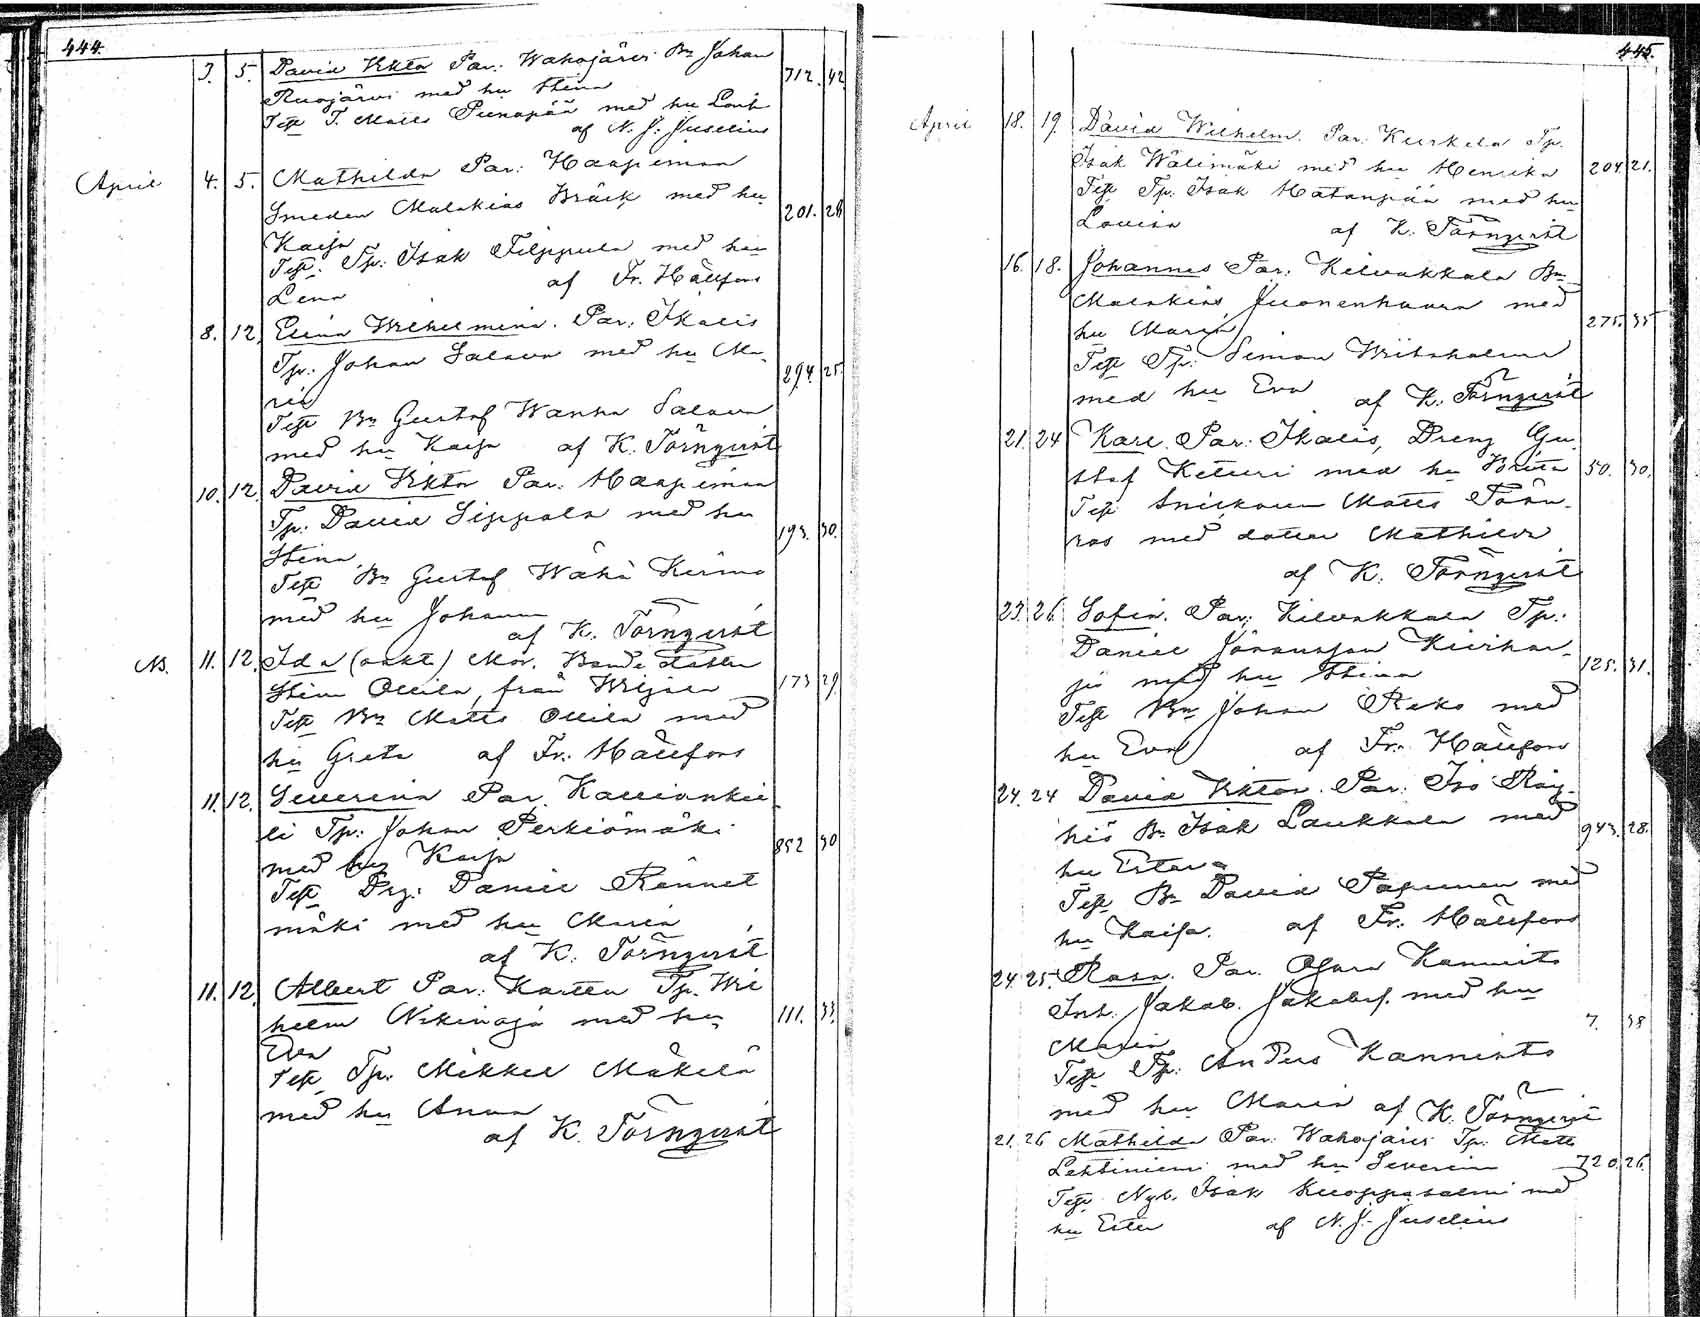 444.
3. 5. David Viktor Par: Wahojärvi Bn Johan 712. 42
Ruojärvi med hu Stina
Test T. Matts Punapää med hu Lovis
af N. J. Juselius
April 4. 5. Mathilda Par: Haapimaa
Smeden Malakias Bräck med hu 201. 28
Kaisa
Test. Tp: Isak Filppula med hu
Lena af Fr. Hällfors
8. 12. Elina Wilhelmina. Par: Ikalis
Tp. Johan Salava med hu Ma- 294 25.
ria
Test Bn Gustaf Wanha Salava
med hu Kaisa af K. Törnqvist
10. 12. David Viktor Par: Haapimaa
Tp. David Sippola med hu 193. 30.
Stina
Test Bn Gustaf Wähä Kirmo
med hu Johanna
af K. Törnqvist
NB. 11. 12. Ida (oäkta) Mor. Bonde dotter
Stina Ollila, från Wiljala 173 29
Test Bn Matts Ollila med
hu Greta af Fr. Hällfors
11. 12. Severina Par. Kovionkie-
li Tp: Johan Perkiömäki 852 30
med hu Kaisa
Test Drg: Daniel Rännet
mäki med hu Maria
af K. Törnqvist
11. 12. Albert Par: Kartti Tp. Wil
helm Niskinoja med hu 111. 33.
Eva
Test Tp: Mikkel Mäkelä
med hu Anna
af K. Törnqvist
445.
April 18. 19. David Wilhelm. Par: Kurkela Tp.
Isak Wälimäki med hu Henrika 204. 21.
Test Tp. Isak Hatanpää med hu
Lovisa af K. Törnqvist
16. 18. Johannes Par: Kilvakkala Bn
Malakias Juonenhaara med 275. 35
hu Maria
Test Tp: Simon Wiitaholma
med hu Eva af K. Törnqvist
21. 24 Karl. Par: Ikalis, Dreng Gu
staf Keturi med hu Brita 50. 30.
Test Snickaren Matts Törn-
ros med dotter Mathilda
af K. Törnqvist
23. 26 Sofia. Par: Kilvakkala Tp:
Daniel Jöransson Kivihar- 125. 31.
ju med hu Stina
Test Bn Johan Riko med
hu Eva af Fr. Hällfors
24. 24 David Viktor. Par: Iso Röy-
hiö Bn Isak Laukkala med 943. 28.
hu Ester
Test Bn David Papunen med
hu Kaisa. af Fr. Hällfors
24 25. Rosa. Par. Ojara Kannisto
Inh. Jakob Jakobsf. med hu 7. 38
Maria
Test Tp: Anders Kannisto
med hu Maria af K. Törnqvist
21. 26 Mathilda Par: Wahojärvi Tp: Matts
Lehtiniemi med hu Severina 720. 26.
Test Nyb. Isak Kuoppasalmi med
hu Ester af N. J. Juselius